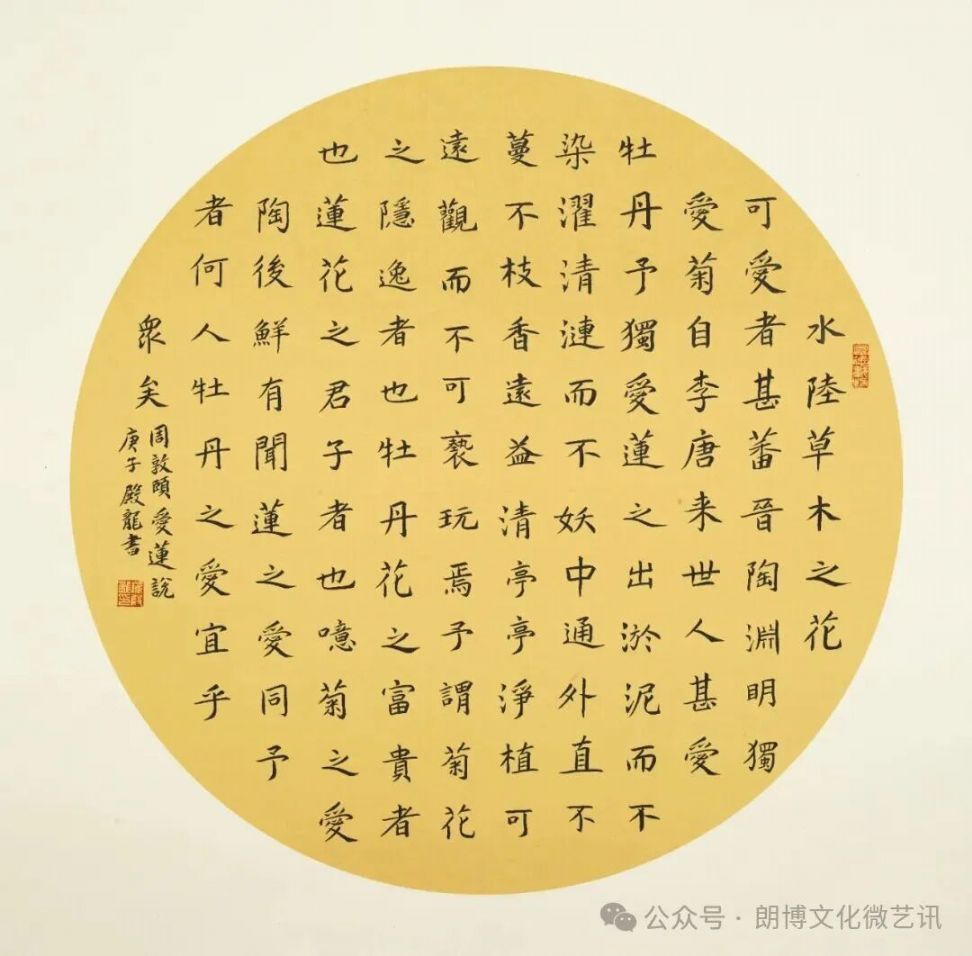 水陸草木之花
可愛者甚蕃晉陶淵明獨
愛菊自李唐来世人甚愛
牡丹予獨愛蓮之出淤泥而不
染濯清漣而不妖中通外直不
蔓不枝香遠益清亭亭淨植可
遠觀而不可褻玩焉予謂菊花
之隱逸者也牡丹花之富貴者
也蓮花之君子者也噫菊之愛
陶後鮮有聞蓮之愛同予
者何人牡丹之愛宜乎
衆矣
周敦頤愛蓮說
庚子殿龍書
公众号·朗博文化微艺讯